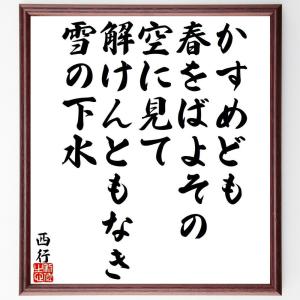 かすめども
春をばよその
空に見て
解けんともなき
雪の下水
西行